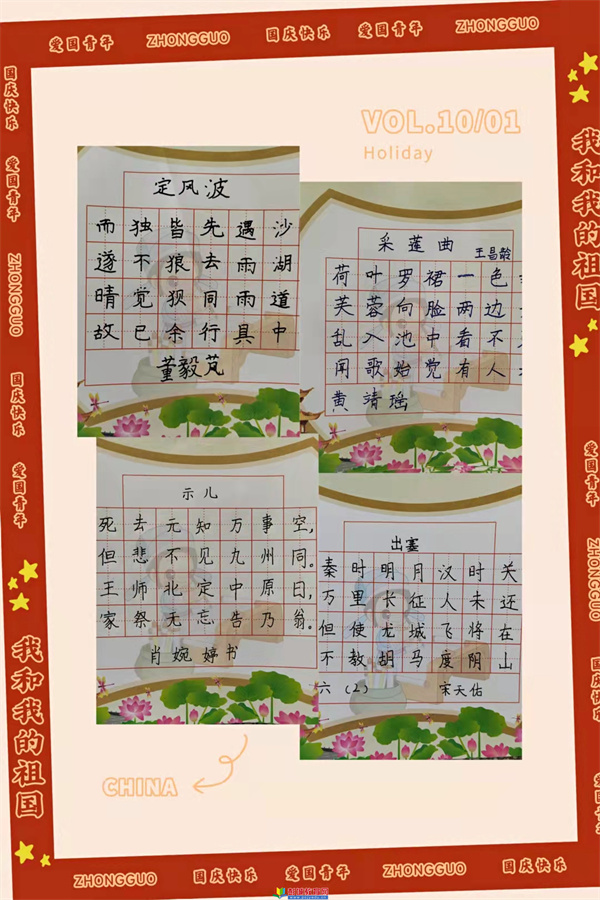 爱国青年 ZHONGGUO 国庆快乐 爱国青年 ZHONGGUO
VOL.10/01
Holiday
定风波
沙湖道中
遇雨雨具
先去同行
皆狼狈余
独不觉已
而遂晴故
董毅芃
采莲曲
王昌龄
荷叶罗裙一色
芙蓉向脸两边
乱入池中看不
闻歌始觉有人
黄靖瑶
示儿
死去元知万事空，
但悲不见九州同。
王师北定中原日，
家祭无忘告乃翁。
肖婉婷书
出塞
秦时明月汉时关
万里长征人未还
但使龙城飞将在
不教胡马度阴山
六（2） 宋天佑
CHINA
国庆快乐
爱国青年
ZHONGGUO
国庆快乐
爱国青年
我和我的祖国
我和我的祖国
爱国青年
ZHONGGUO
国庆快乐
爱国青年
ZHONGGUO 国庆快乐 爱国青年 ZHONGGUO 国庆快乐